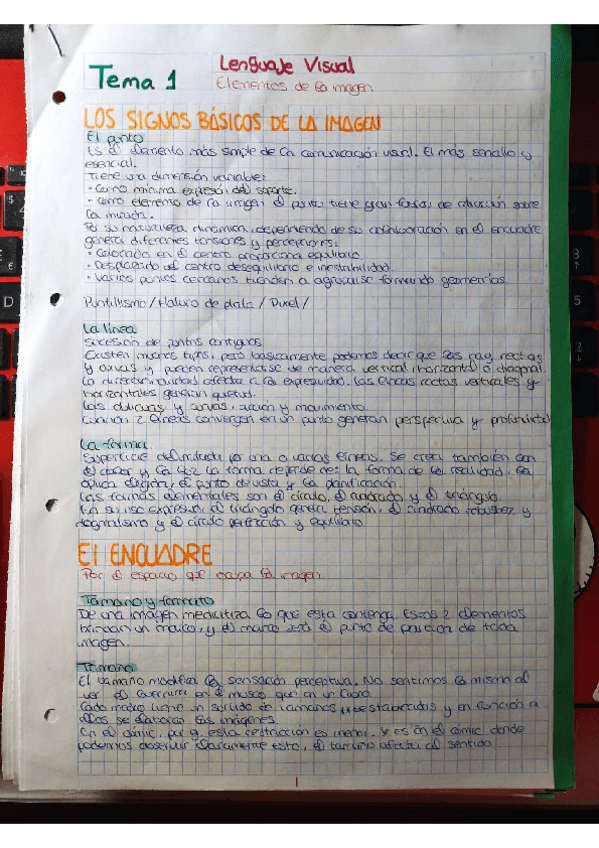 Tema 1
Lenguaje Visual
Elementos de la imagen
LOS SIGNOS BÁSICOS DE LA IMAGEN
El punto
Es el elemento más simple de la comunicación visual. El más sencillo y
esencial.
Tiene una dimensión variable:
· Como mínima expresión del soporte.
· Como elemento de la imagen el punto tiene gran fuerza de atracción sobre
la mirada.
Por su naturaleza dinámica, dependiendo de su en el encuadre
genera diferentes tensiones y percepciones:
· Colocado en el centro proporciona equilibrio.
· Desplazado del centro desequilibrio e inestabilidad.
· Varios puntos cercanos tienden a agruparse formando geometrías.
Puntillismo / Haluro de plata / Pixel /
La línea
Sucesión de puntos contiguos.
Existen muchos tipos, pero básicamente podemos decir que las hay rectas
y curvas y pueden representarse de manera vertical, horizontal o diagonal.
La direccionalidad afecta a la expresividad. Las líneas rectas verticales y
horizontales generan quietud.
Las oblicuas y curvas, acción y movimiento.
Cuando 2 líneas convergen en un punto generan perspectiva y profundidad
La forma
Superficie delimitada por una o varias líneas. Se crea también con
el color y la luz. La forma depende de: la forma de la realidad, la
óptica elegida, el punto de vista y la planificación.
Las formas elementales son el círculo, el cuadrado y el triángulo.
En su uso expresivo, el triángulo genera tensión, el cuadrado robustez y
dogmatismo y el círculo perfección y equilibrio.
El ENCUADRE
Por el espacio que ocupa la imagen
Tamaño y formato
De una imagen mediatiza lo que esta contenga. Estos 2 elementos
brindan un marco, y el marco será el punto de partida de toda
imagen.
Tamaño
El tamaño modifica la sensación perceptiva. No sentimos lo mismo al
ver el Guernica en el museo que en un libro.
Cada medio tiene un surtido de tamaños preestablecidos y en función a
ellos se elaboran las imágenes.
En el cómic, por ej. esta restricción es menor. Y es en el cómic donde
podemos observar claramente esto, el tamaño afecta al sentido.
1